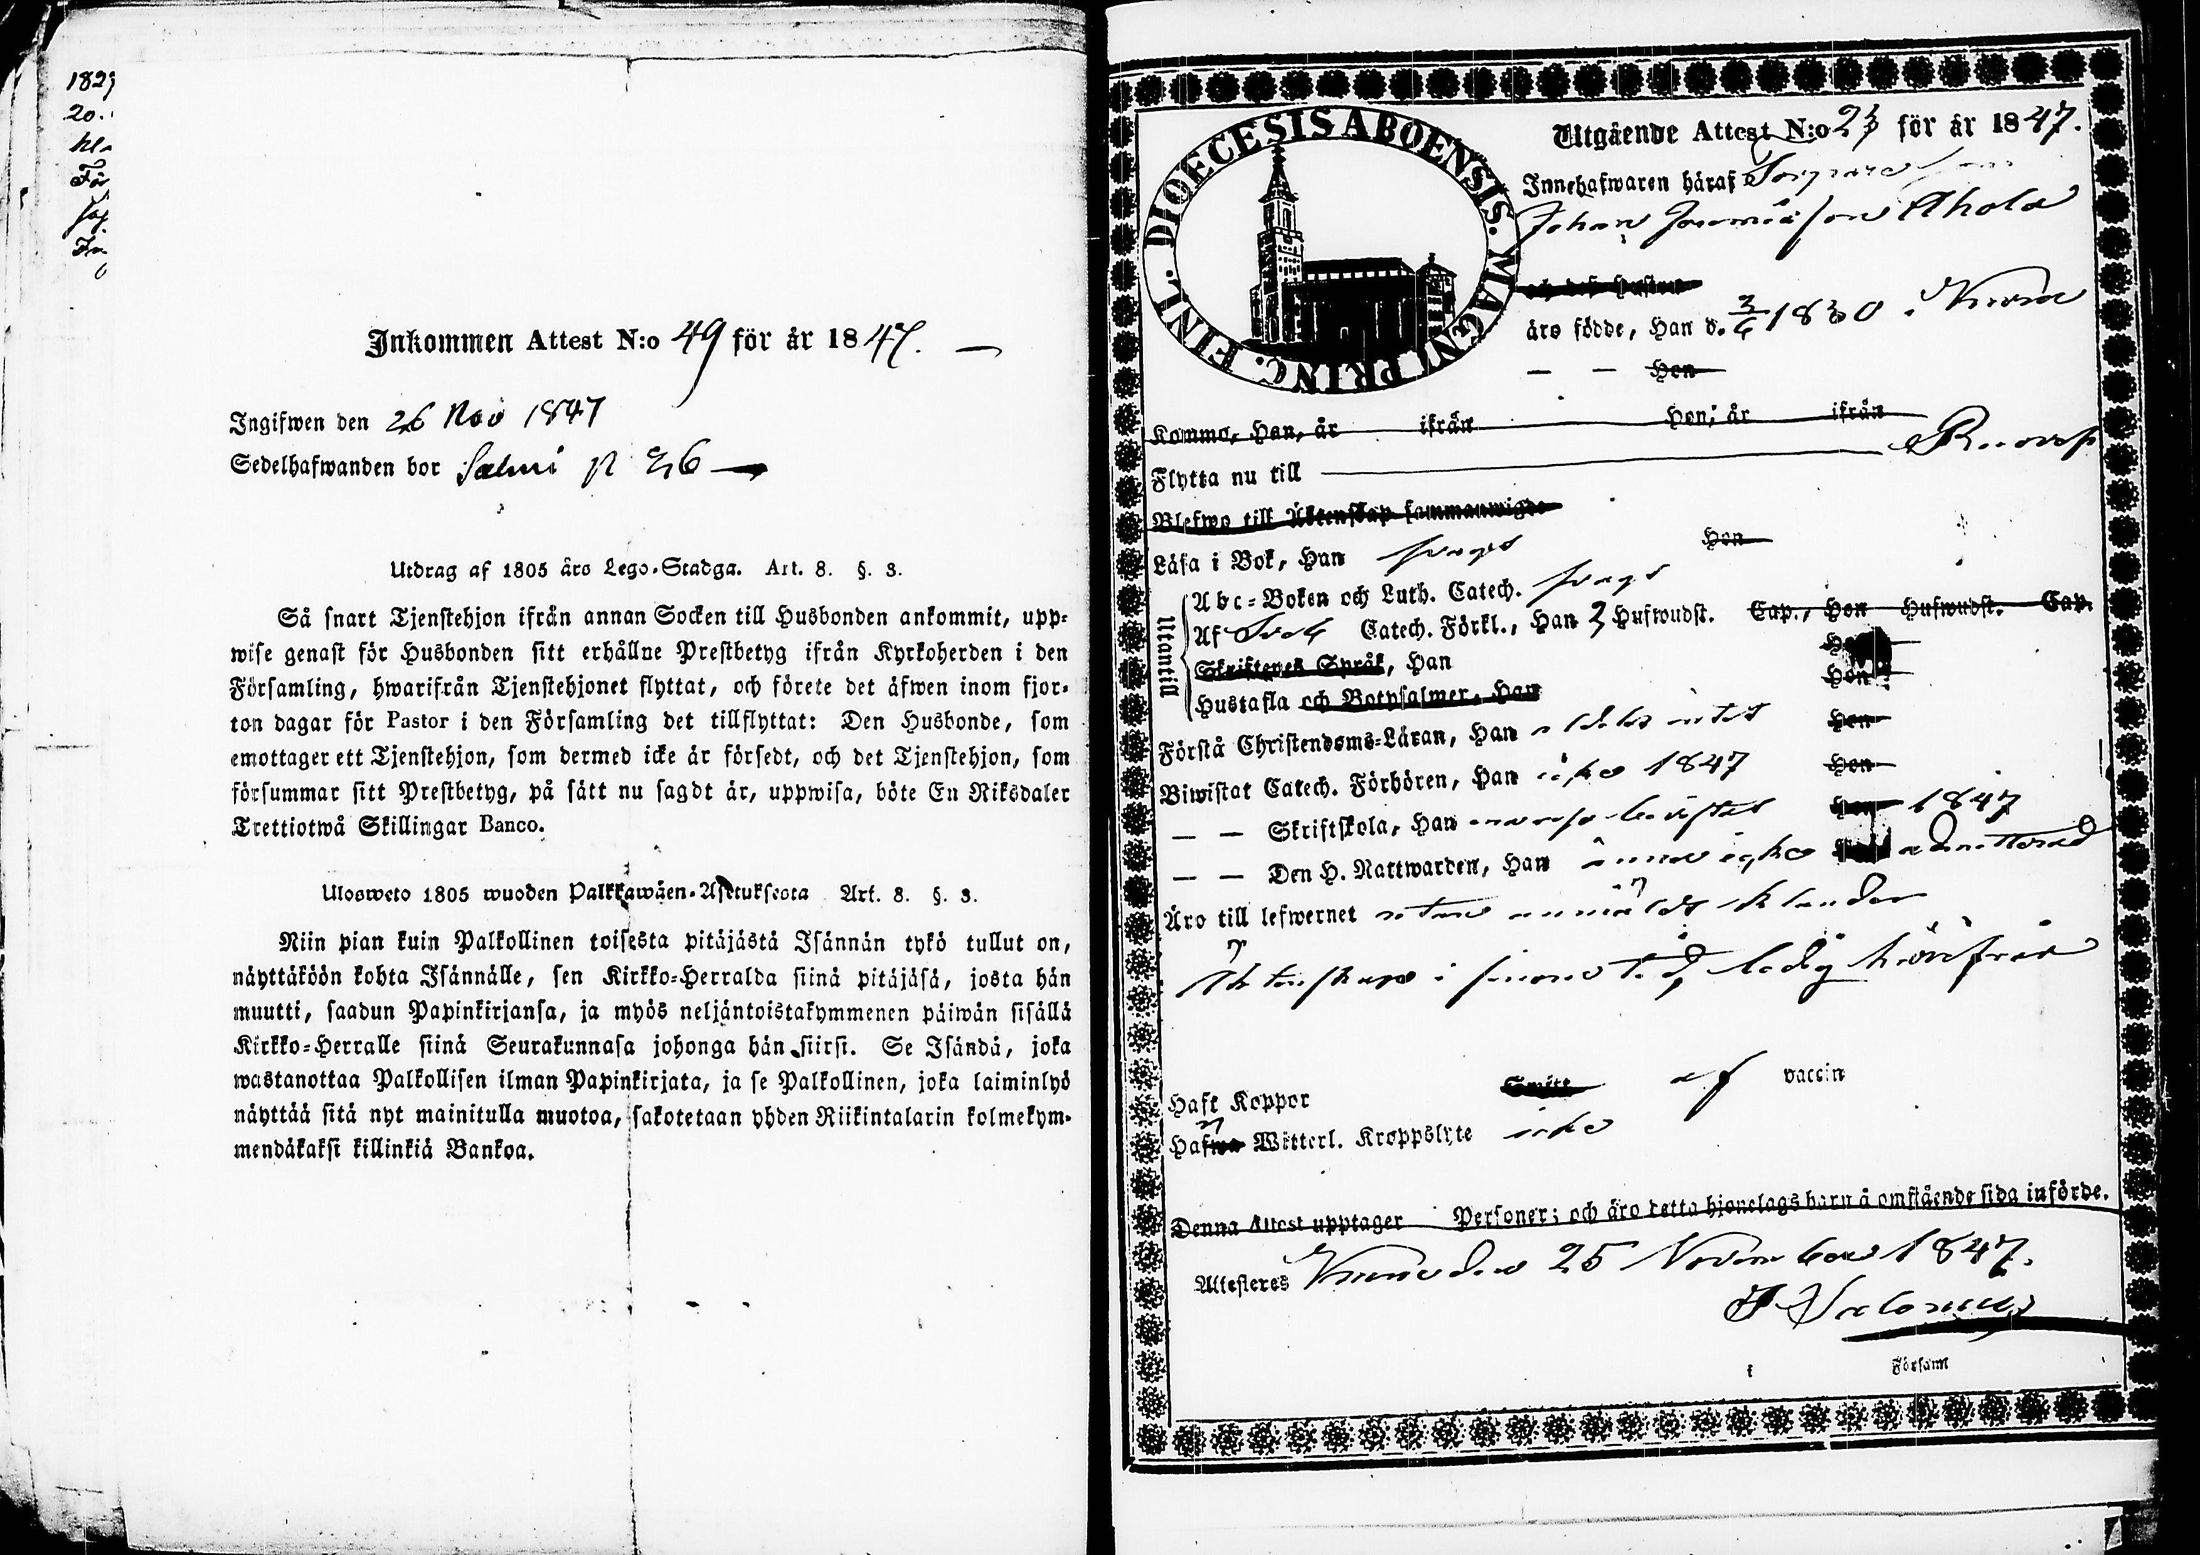 1829
20.
Inkommen Attest N:o 49 för år 1847.
Ingifwen den 26 Nov 1847
Sedelhafwanden bor Salmi
Utdrag af 1805 års Lego-Stadga. Art. 8. §. 3.
Så snart Tjenstehjon ifrån annan Socken till Husbonden ankommit, upp-
wise genast för Husbonden sitt erhållne Prestbetyg ifrån Kyrkoherden i den
Församling, hwarifrån Tjenstehjonet flyttat, och förete det äfwen inom fjor-
ton dagar för Pastor i den Församling det tillflyttat: Den Husbonde, som
emottager ett Tjenstehjon, som dermed icke är försedt, och det Tjenstehjon, som
försummar sitt Prestbetyg, på sätt nu sagdt är, uppwisa, böte En Riksdaler
Trettiotwå Skillingar Banco.
Ulosweto 1805 wuoden Palkkawäen-Asetuksesta Art. 8. §. 3.
Niin pian kuin Palkollinen toisesta pitäjästä Isännän tykö tullut on,
näyttäköön kohta Isännälle, sen Kirkko-Herralda siinä pitäjäsä, josta hän
muutti, saadun Papinkirjansa, ja myös neljäntoistakymmenen päiwän sisällä
Kirkko-Herralle siinä Seurakunnasa johonga hän siirsi. Se Isändä, joka
wastanottaa Palkollisen ilman Papinkirjata, ja se Palkollinen, joka laiminlyö
näyttää sitä nyt mainitulla muotoa, sakotetaan yhden Riikintalarin kolmekym-
mendäkaksi killinkiä Bankoa.
DIOECESIS ABOENSIS. MAGNI PRINC. FINL.
Utgående Attest N:o 23 för år 1847.
Innehafwaren häraf
Johan Jeremiasson Ahola
och dess Hustru
äro födde, Han d. 3/6 1830
— — Hon
Komme, Han, år ifrån Hon, år ifrån
Flytta nu till
Blefwo till Äktenskap sammanwigde
Läsa i Bok, Han swagt Hon
Utantill
Abc-Boken och Luth. Catech. swagt
Af Sveb Catech. Förkl., Han 3 Hufwudst. Cap., Hon Hufwudst. Cap.
Skriftenes Språk, Han Hon
Hustafla och Botpsalmer, Han Hon
Förstå Christendoms-Läran, Han aldeles intet Hon
Biwistat Catech. Förhören, Han icke 1847 Hon
— — Skriftskola, Han bewistat Hon 1847
— — Den H. Nattwarden, Han ännu icke admitterad
Äro till lefwernet utan anmäldt klander
Äktenskap i sinom tid, ledig härifrån
Haft Koppor Smitt af vaccin
Hafwa Witterl. Kroppslyte icke
Denna Attest upptager Personer; och äro detta hjonelags barn å omstående sida införde.
Attesteras den 25 November 1847.
i Församl